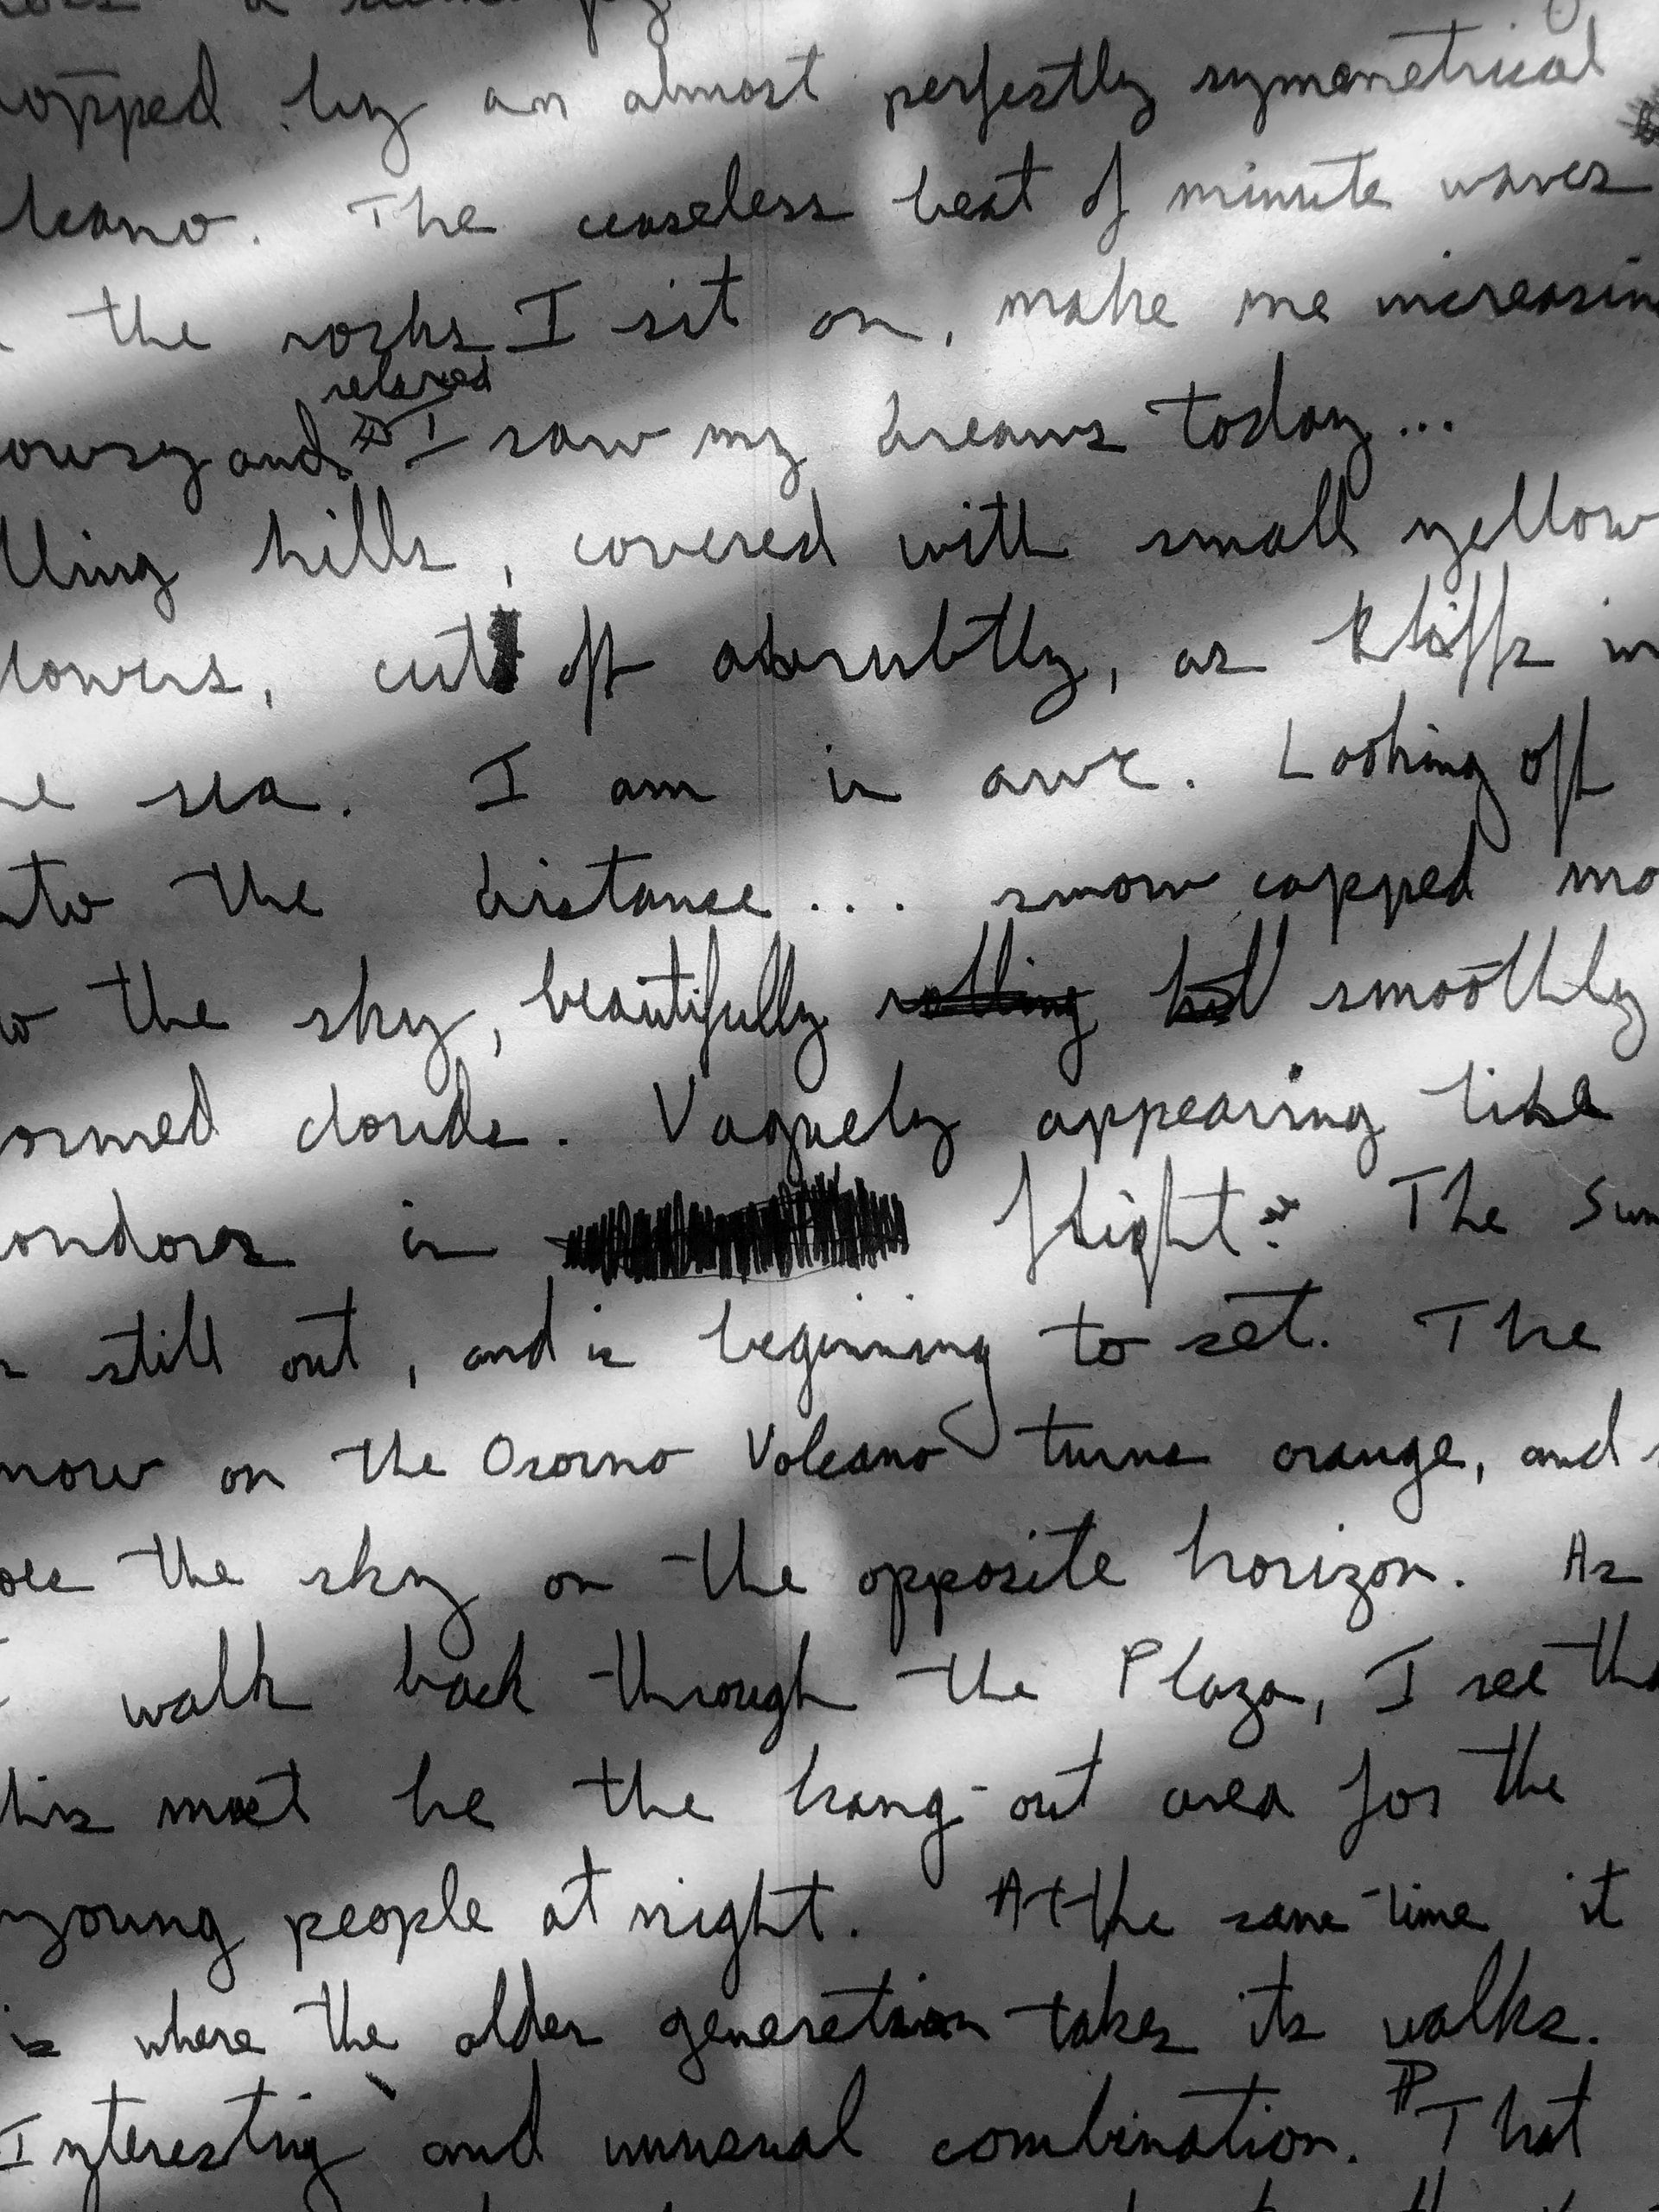 opped by an almost perfectly symmetrical
lcano. The ceaseless beat of minute waves
the rocks I sit on, make me increasin
relaxed
owsy and I saw my dreams today...
lling hills, covered with small yellow
lowers, cut off abrubtly, as kliffs in
he sea. I am in awe. Looking off
nto the distance... snow capped mo
to the sky, beautifully rolling hil smoothly
ormed clouds. Vaguely appearing like
ondors in flight. The Sun
is still out, and is beginning to set. The
now on the Osorno Volcano turns orange, and s
oes the sky on the opposite horizon. As
I walk back through the Plaza, I see tha
his must be the hang-out area for the
young people at night. At the same time it
is where the older generation takes its walks.
Interesting and unusual combination. ¶ That